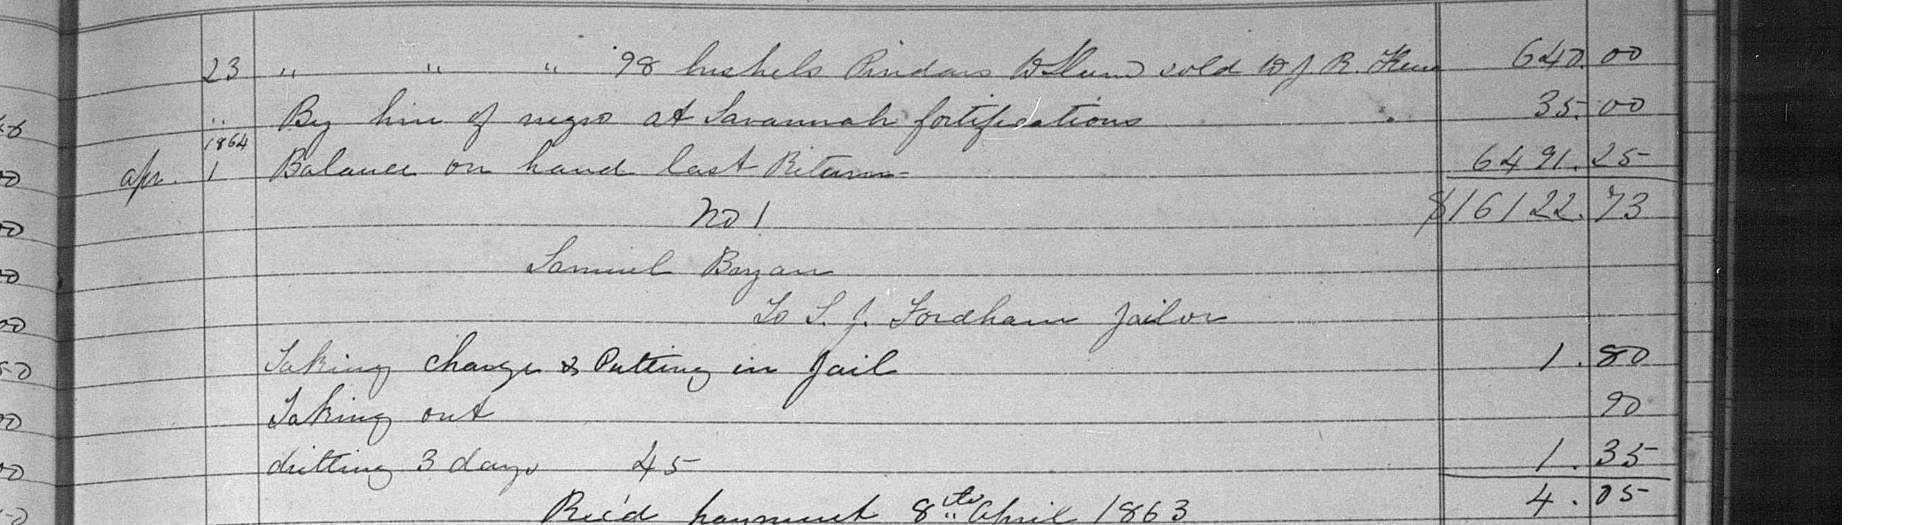 23 " " " 98 bushels Pindars sold to J. R. 640.00
" By hire of negro at Savannah fortifications 35.00
1864
Apr. 1 Balance on hand last Return 6491.25
No 1 $16122.73
Samuel Bryan
To S. J. Fordham Jailor
Taking charge & Putting in Jail 1.80
Taking out 90
dieting 3 days 45 1.35
Rec'd payment 8th April 1863 4.05